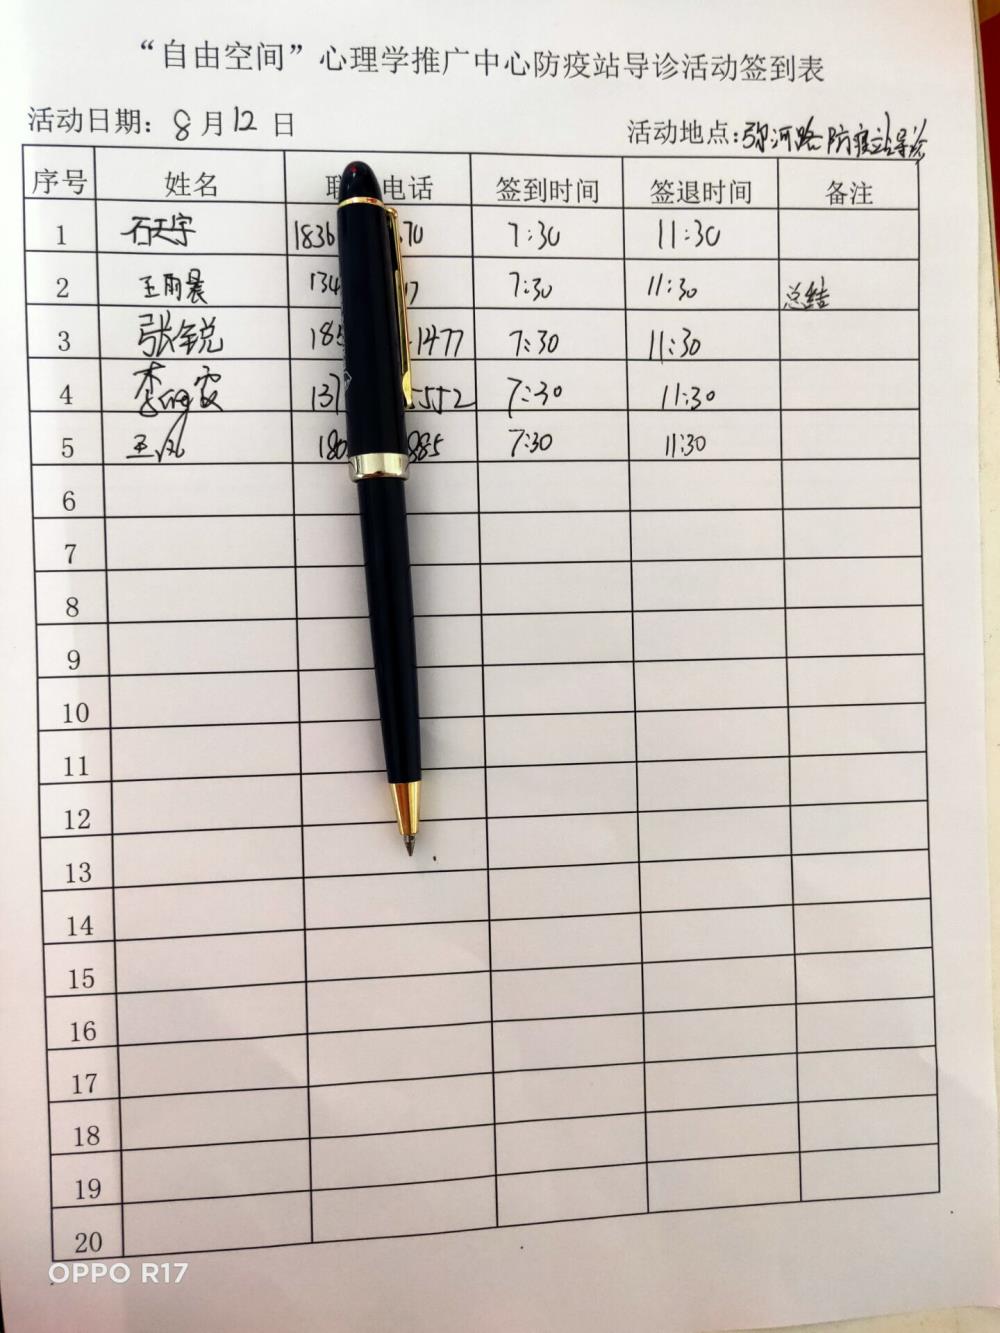 “自由空间”心理学推广中心防疫站导诊活动签到表
活动日期：8月12日 活动地点：弥河路防疫站导诊
序号 姓名 联 电话 签到时间 签退时间 备注
1 石天宇 1836 70 7:30 11:30
2 王雨晨 134 7 7:30 11:30 总结
3 张锐 185 1477 7:30 11:30
4 李 霞 137 5552 7:30 11:30
5 王风 180 885 7:30 11:30
6
7
8
9
10
11
12
13
14
15
16
17
18
19
20
OPPO R17